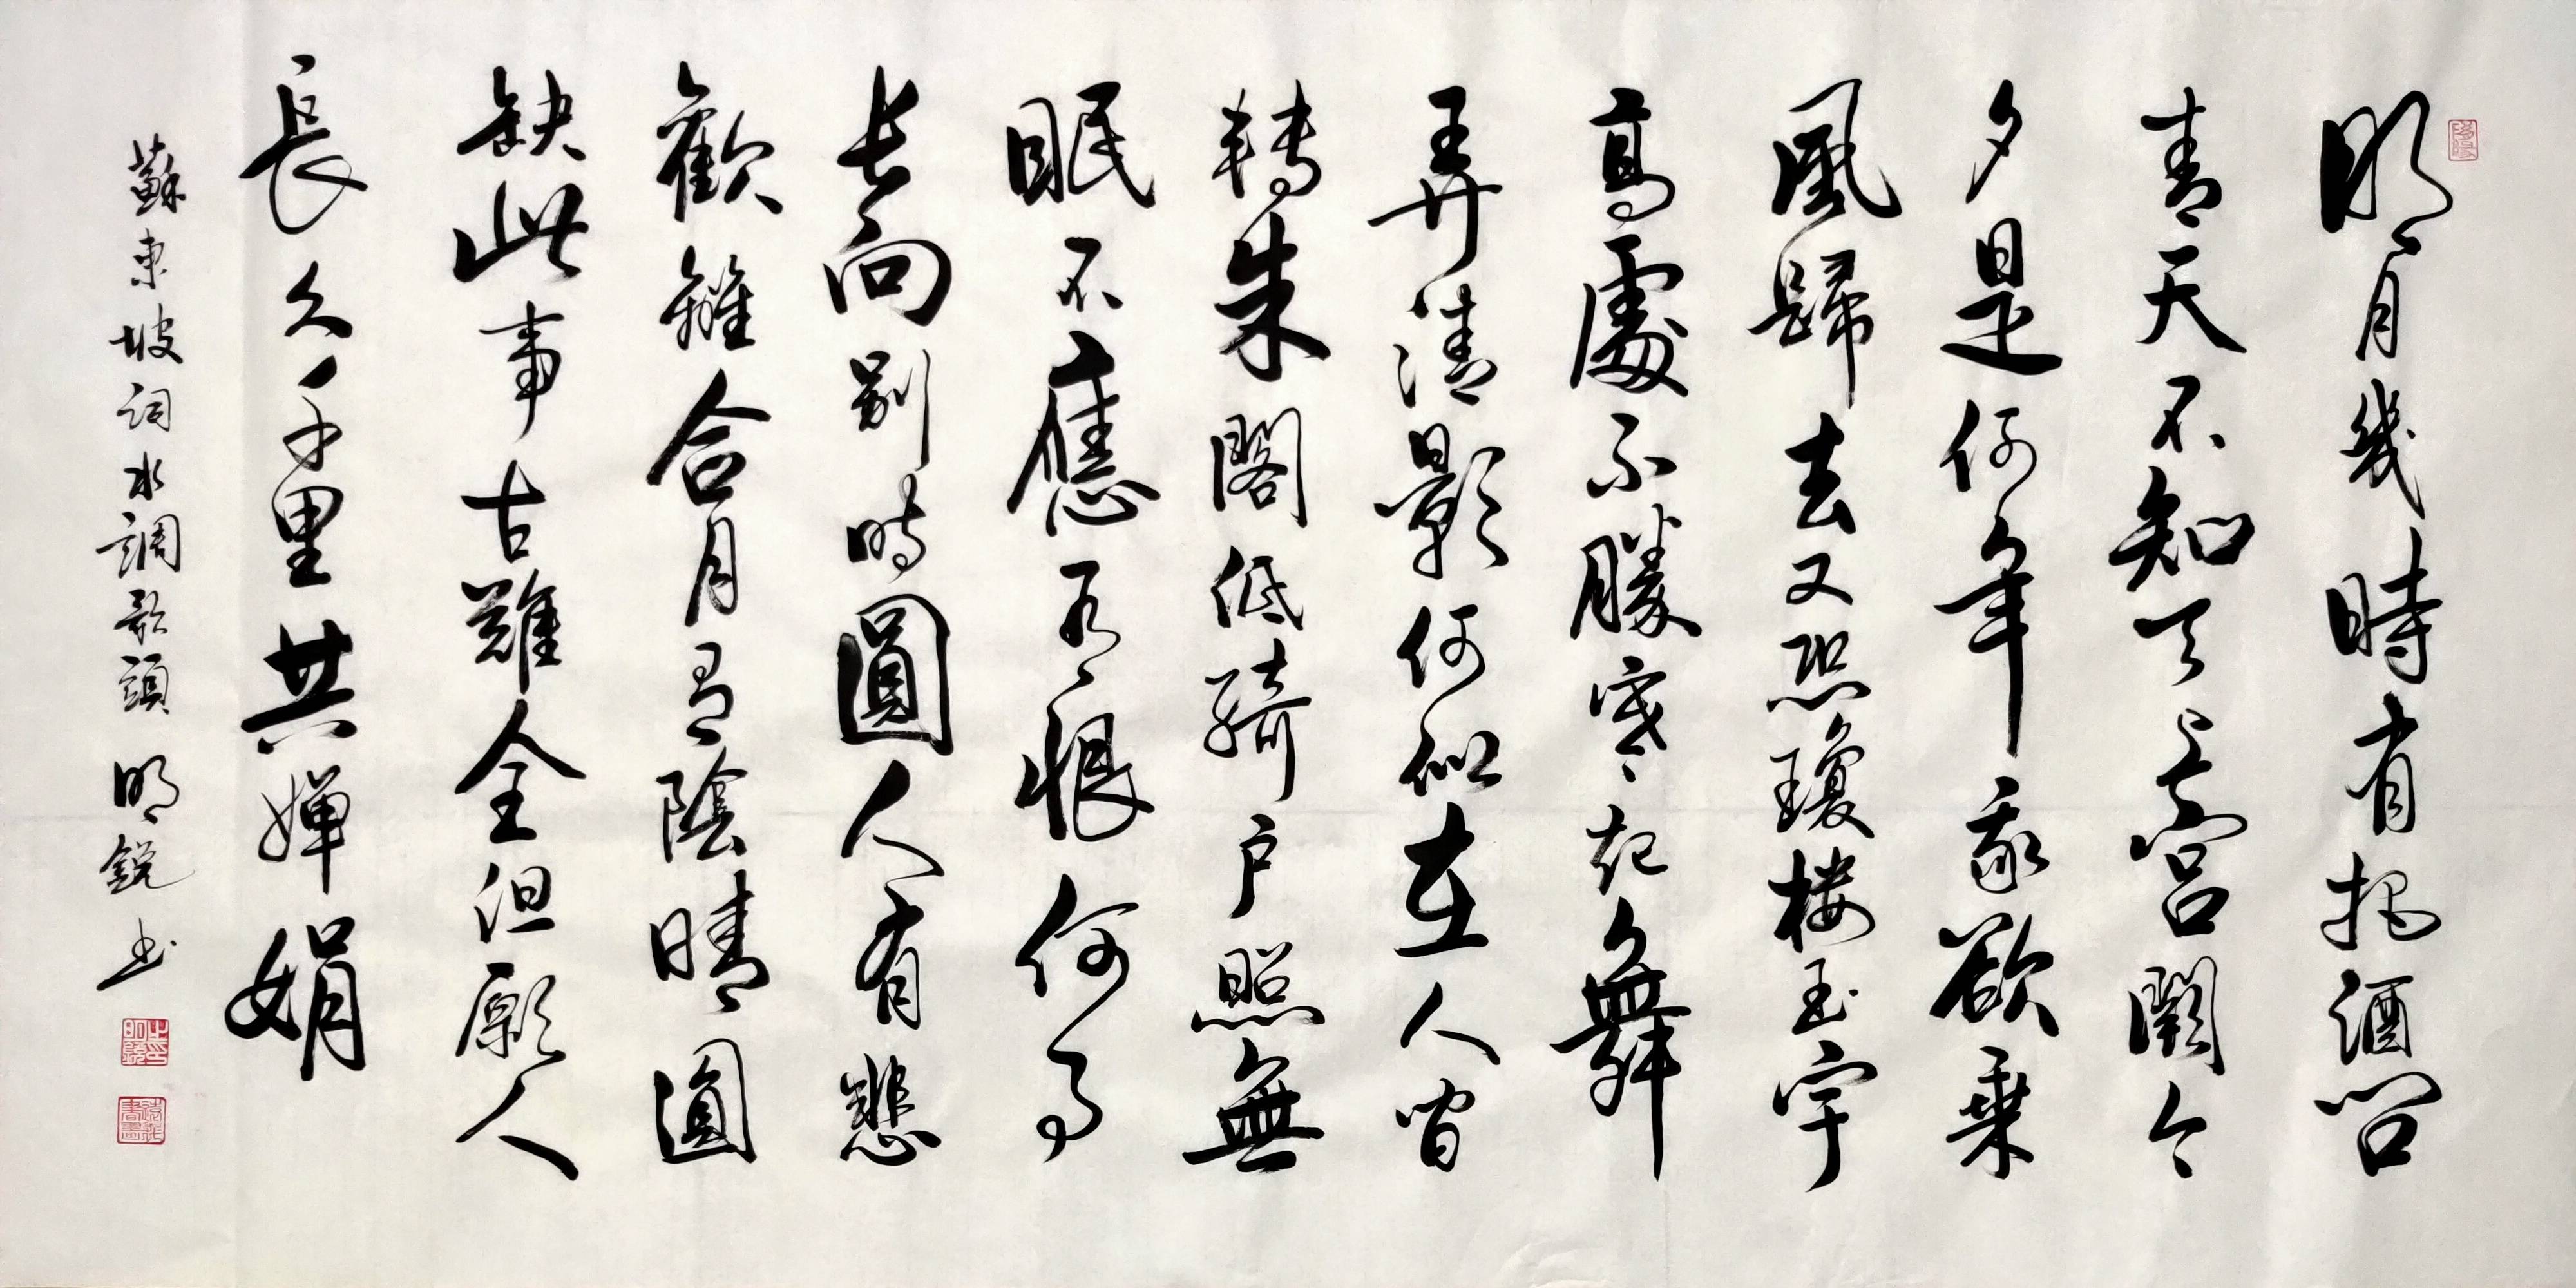 明月幾時有把酒問
青天不知天上宮闕今
夕是何年我欲乘
風歸去又恐瓊樓玉宇
高處不勝寒起舞
弄清影何似在人間
轉朱閣低綺户照無
眠不應有恨何事
長向別時圓人有悲
歡離合月有陰晴圓
缺此事古難全但願人
長久千里共嬋娟
蘇東坡詞水調歌頭 明銳书